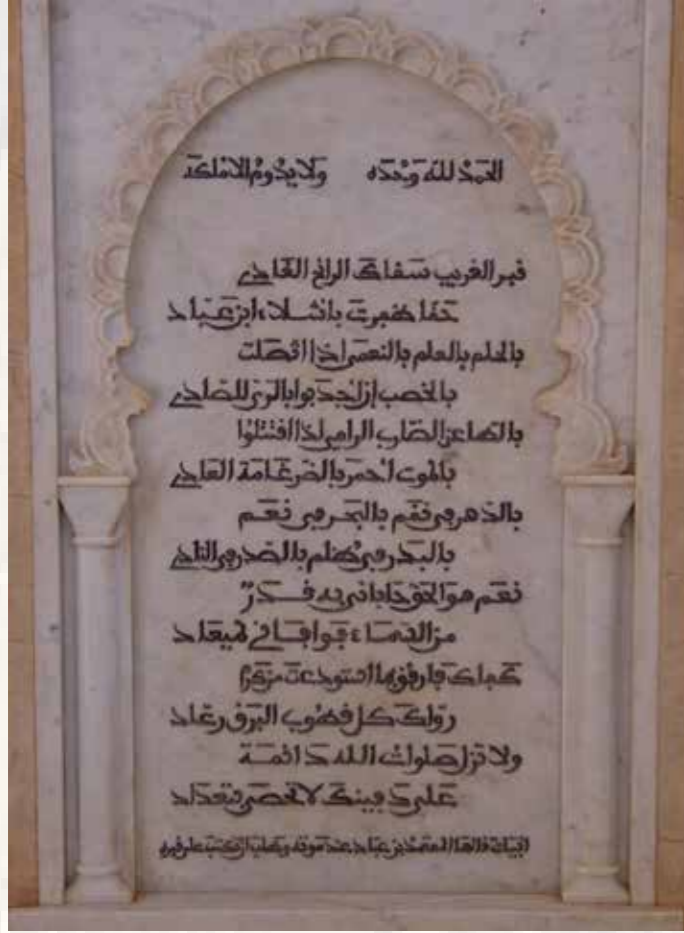 الحَمْدُ للهِ وَحْدَه ولا يدُومُ الا مُلكه
قبر الغريب سقاك الرائح الغادي
حقا ظفرت باشلاء ابن عباد
بالحلم بالعلم بالنعمى اذا اتصلت
بالخصب إن اجدبوا بالري للصادي
بالطاعن الضارب الرامي اذا اقتتلوا
بالموت احمر بالضرغامة العادي
بالدهر في نقم بالبحر في نعم
بالبدر في ظلم بالصدر في النادي
نعم هو الحق حاباني به قدر
من السماء فوافاني لميعاد
كفاك فارفق بما استودعت من كرم
رواك كل قطوب البرق رعاد
ولا تزل صلوات الله دائمة
على دفينك لا تحصى بتعداد
ابيات قالها المعتمد بن عباد عند موته وطلب ان تكتب على قبره